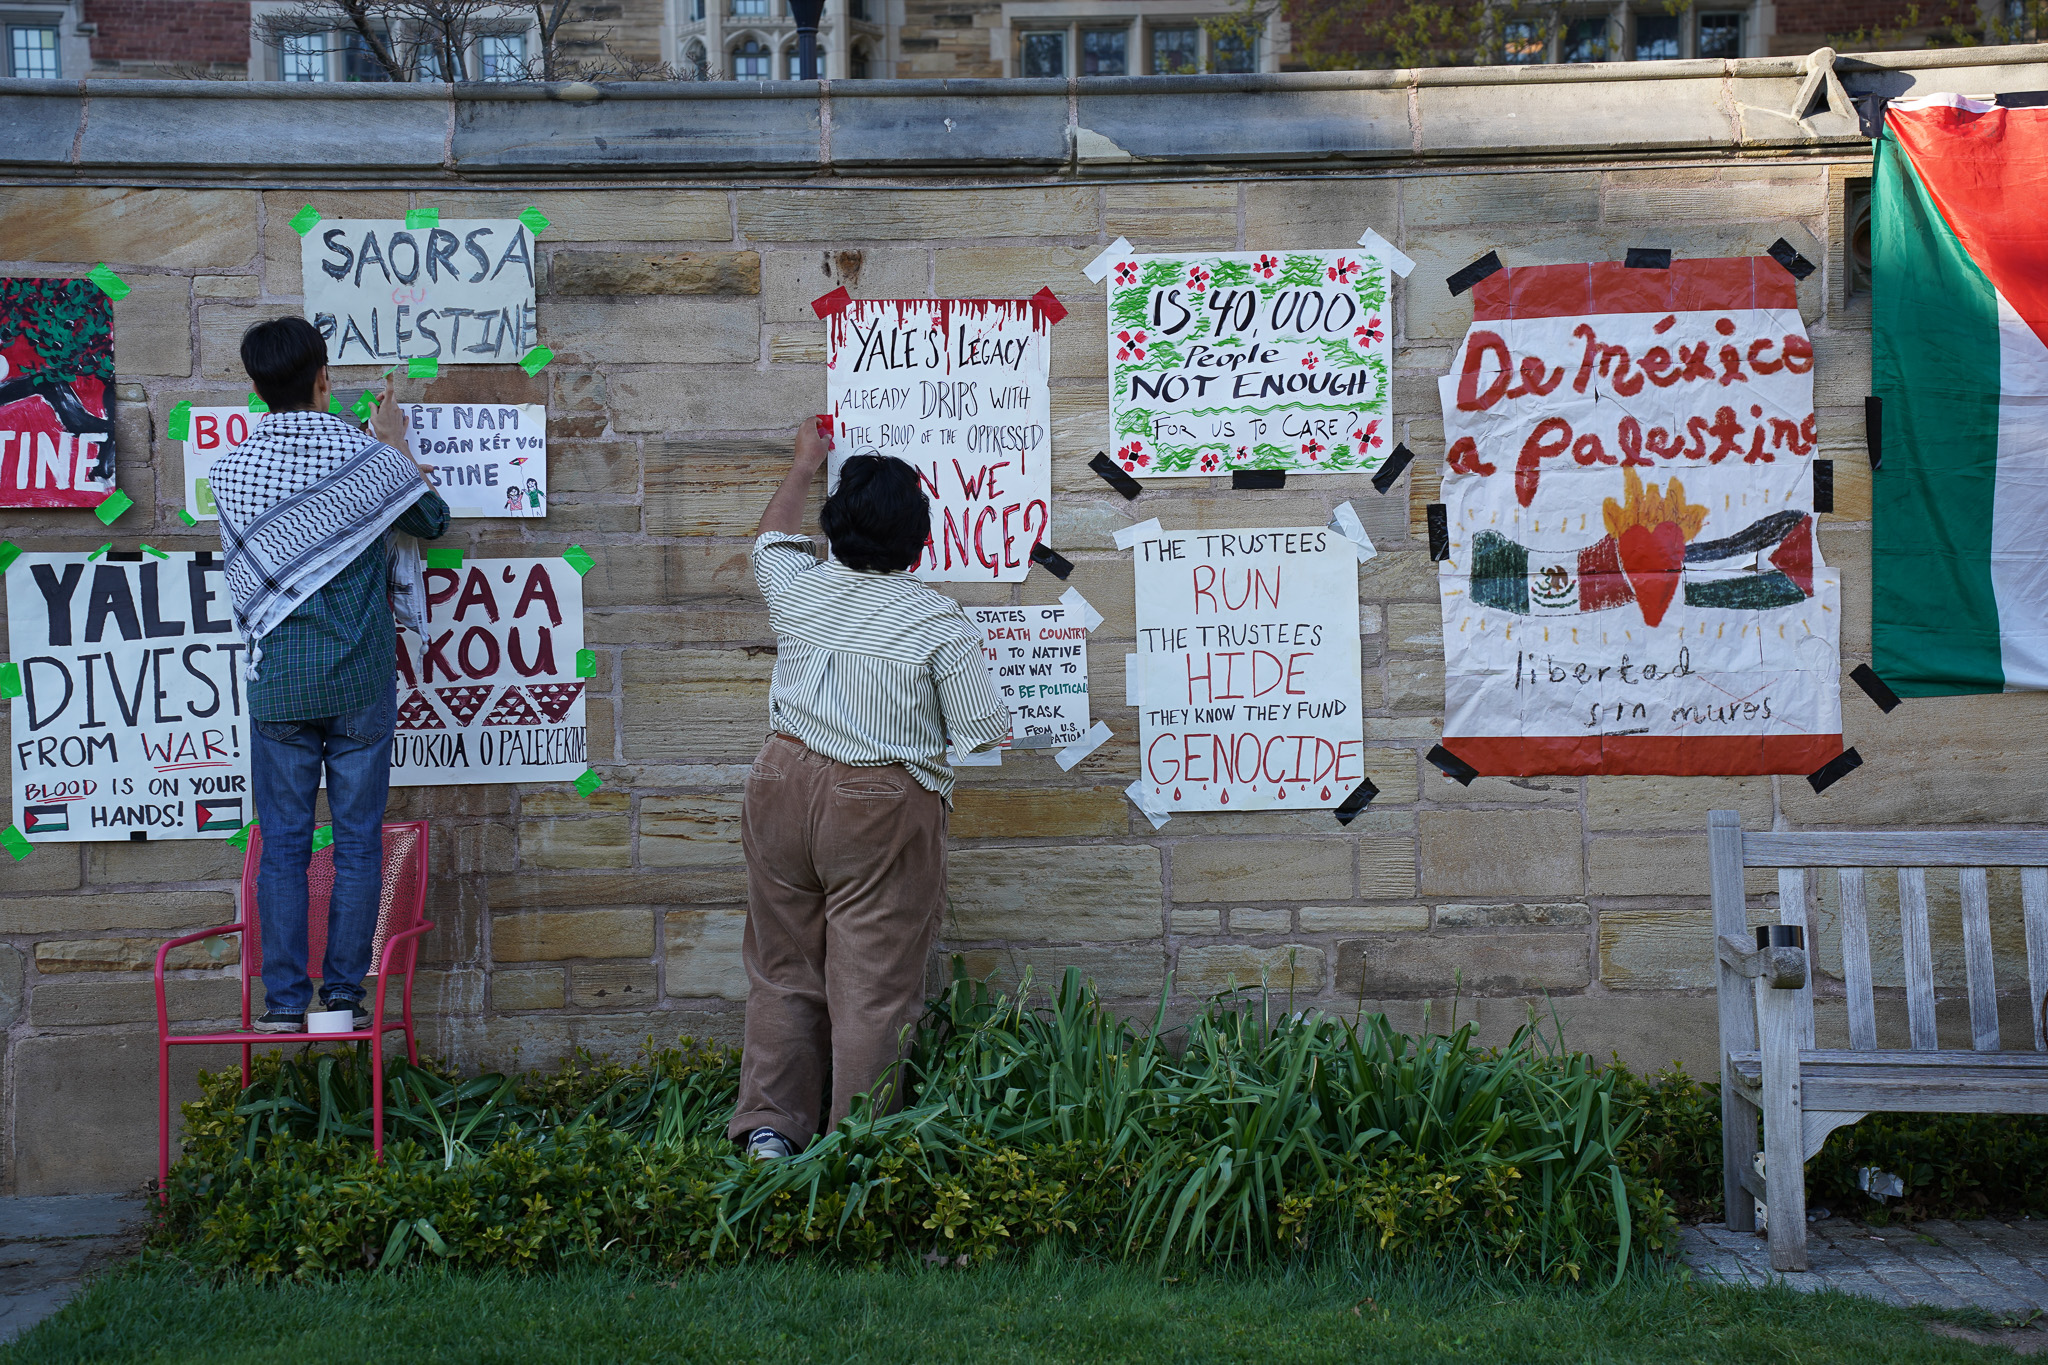 SAORSA
GU
PALESTINE
TINE
BO
ĐOÀN KẾT VỚI
NAM
YALE
DIVEST
FROM WAR!
BLOOD IS ON YOUR
HANDS!
PA'A
KOU
O PALEKEKINE
YALE'S LEGACY
ALREADY DRIPS WITH
THE BLOOD OF THE OPPRESSED
WE
STATES OF
DEATH COUNTRY
TO NATIVE
ONLY WAY TO
TO BE POLITICAL
-TRASK
FROM U.S.
IS 40,000
People
NOT ENOUGH
FOR US TO CARE?
THE TRUSTEES
RUN
THE TRUSTEES
HIDE
THEY KNOW THEY FUND
GENOCIDE
De México
a palestina
libertad
sin muros